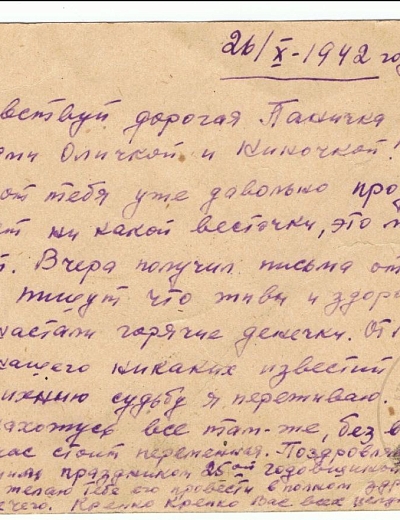 26/X-1942 го
вствуй дорогая Паничка
Оличкой и Ниночкой!
от тебя уже давольно про
ет ни какой весточки, это
т. Вчера получил письма от
пишут что живы и здоро
настали горячие денечки. От
нащего никаких известий
судьбу я переживаю.
нахожусь все там-же, без
нас стоит переменная. Поздровля
праздником 25ой годовщиной
желаю тебе его провести в полном здр
Крепко Крепко Вас всех целую